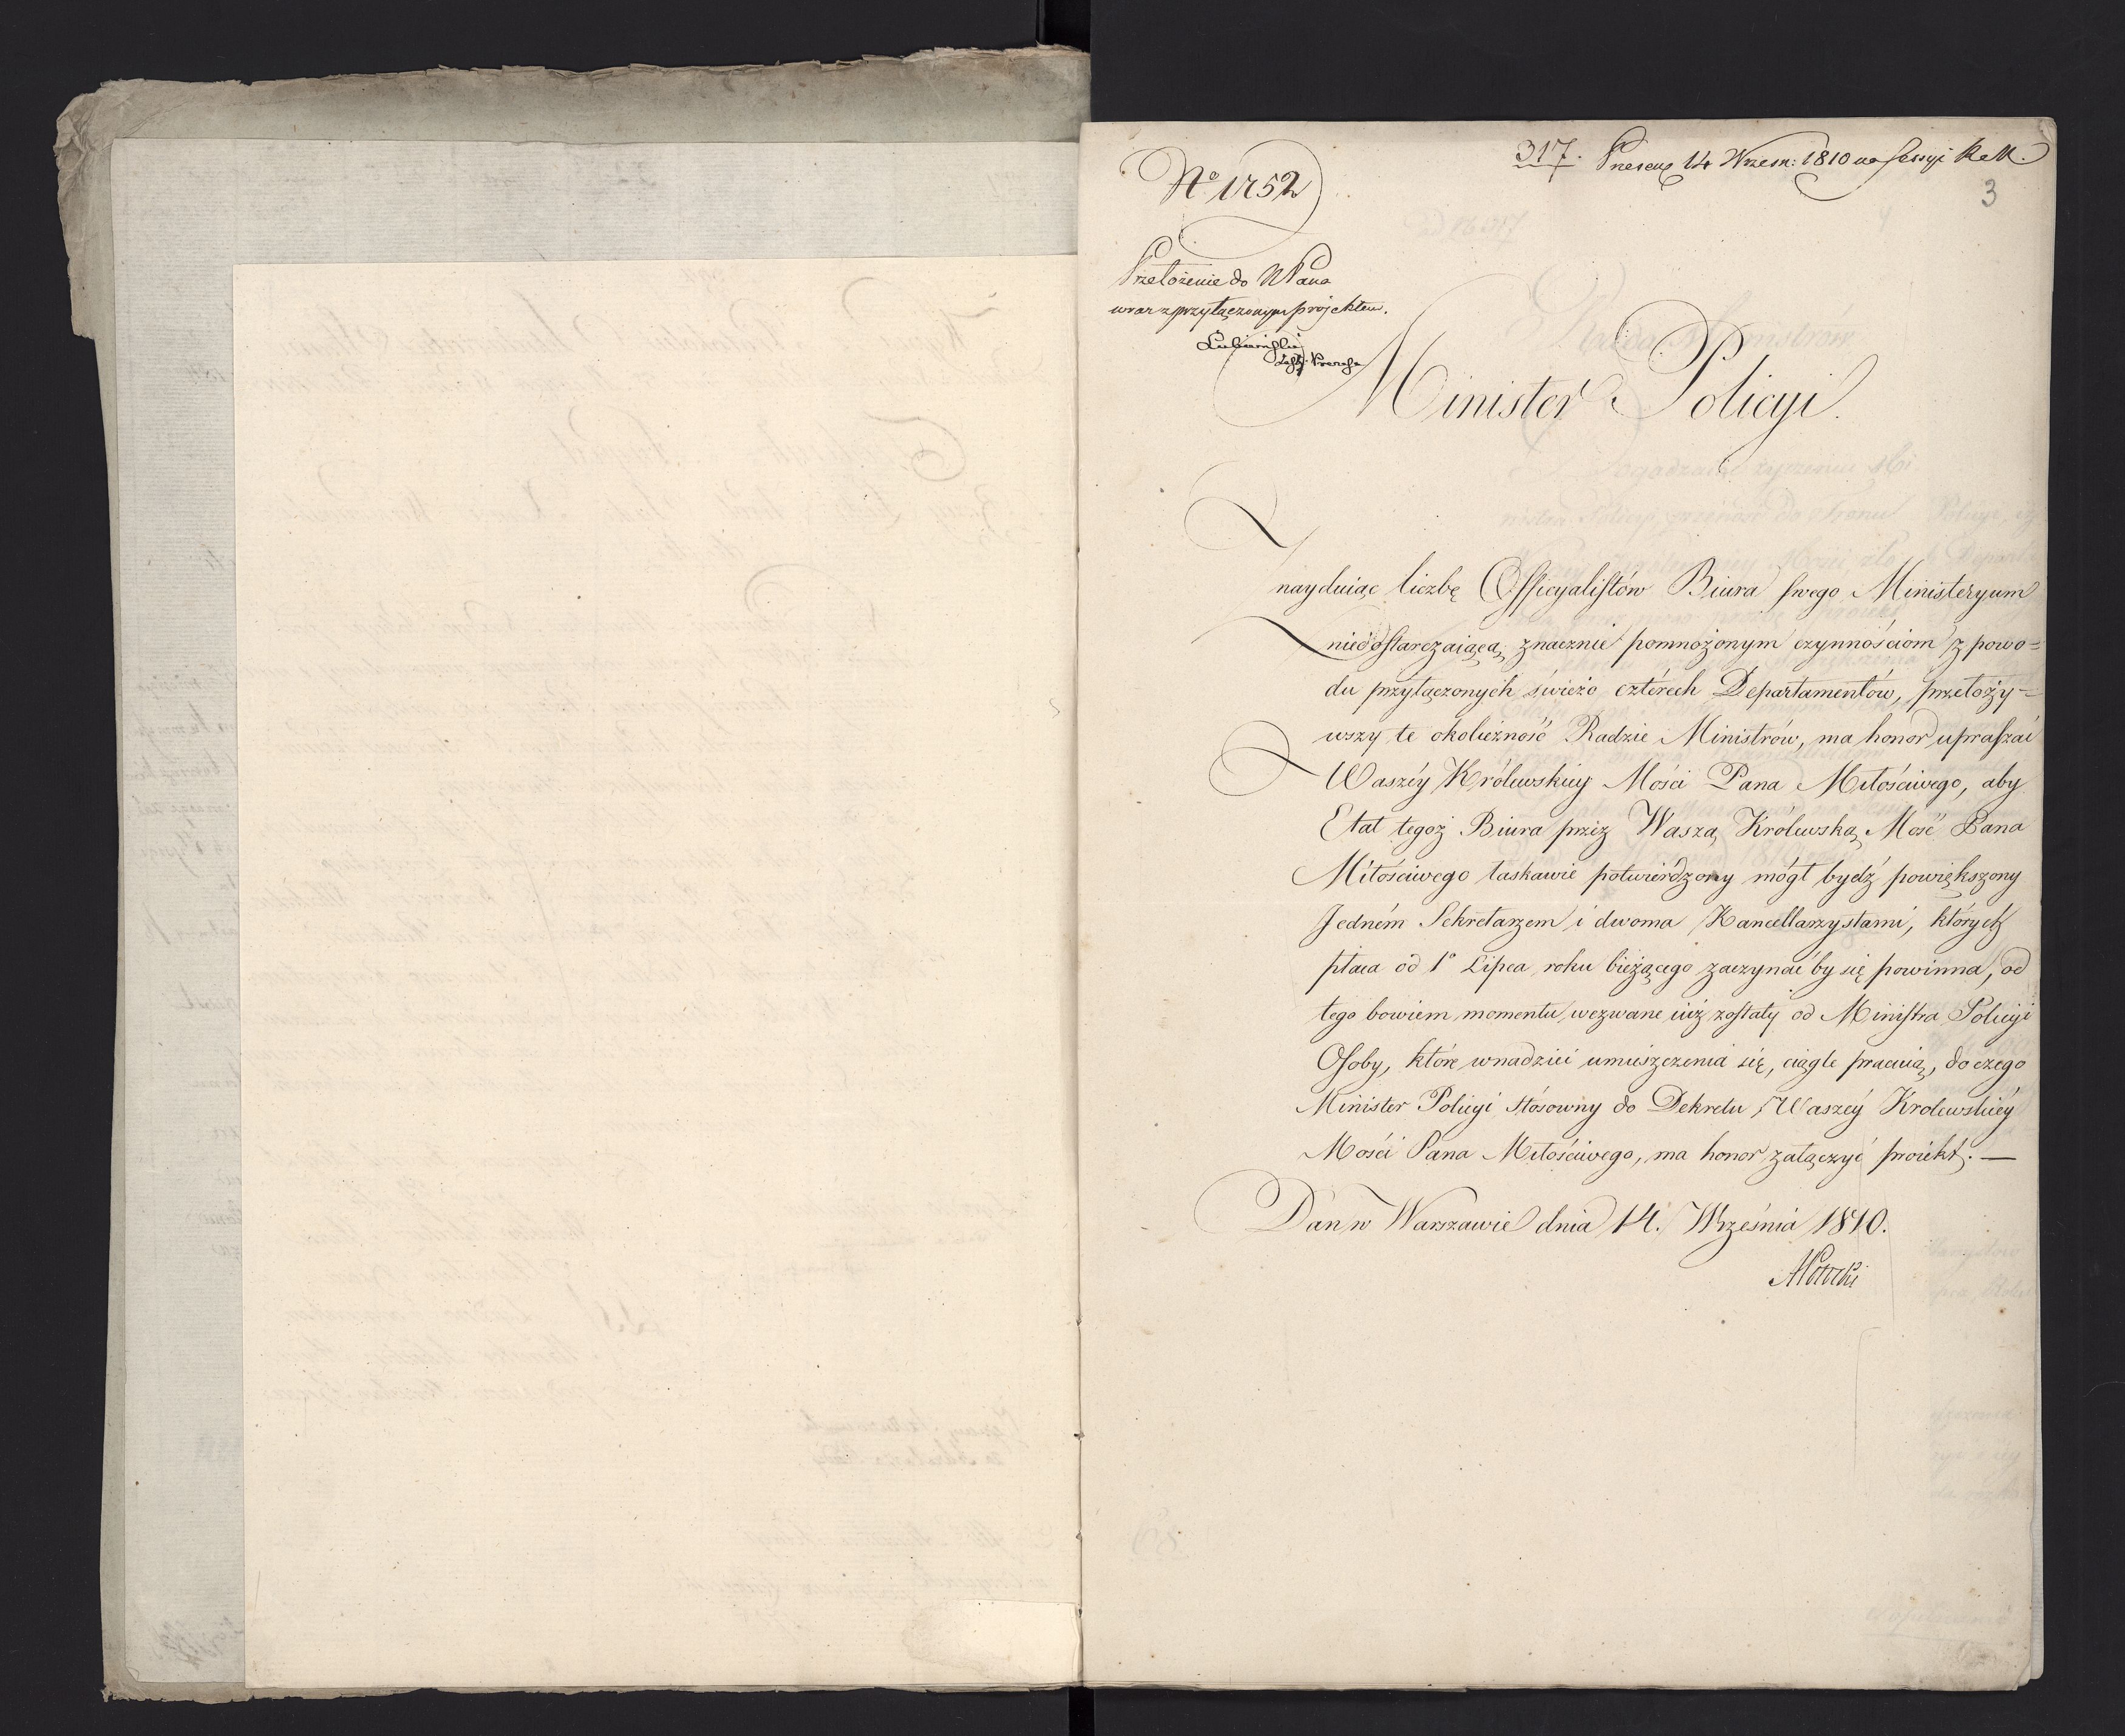 317. Præsent: 14 Wrześn: 1810 na sessyi R. M.
3
No 1752
Przełożenie do NPana
wraz z przyłączonym projektem.
Minister Policyi.
Znayduiąc liczbę Officyalistów Biura swego Ministeryum
niedostarczaiącą, znacznie pomnożonym czynnościom z powo=
du przyłączonych świéżo cztérech Departamentów, przełoży=
wszy te okoliczność Radzie Ministrów, ma honor upraszać
Waszéy Królewskiey Mości Pana Miłościwego, aby
Etat tegoż Biura przez Waszą Królewską Mość Pana
Miłościwego łaskawie potwierdzony mógł bydź powiększony
Jedném Sekretarzem i dwoma Kancellarzystami, których
płaca od 1o Lipca roku bieżącego zaczynać by się powinna, od
tego bowiem momentu wezwane iuż zostały od Ministra Policyi
Osoby, które w nadziei umieszczenia się, ciągle pracuią, do czego
Minister Policyi stósowny do Dekretu Waszéy Krolewskiéy
Mości Pana Miłościwego, ma honor załączyć proiekt. —
Dan w Warszawie dnia 14. Września 1810.
APotocki